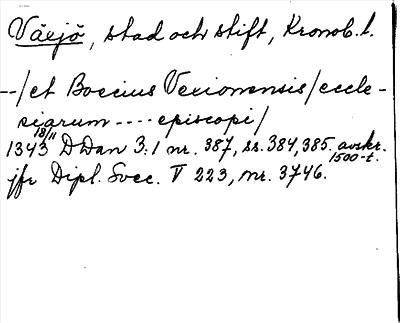 Växjö, stad och stift, Kronob. l.
--/et Boecius Vexionensis/eccle-
siarum ---- episcopi/
1343 18/11 DDan 3:1 nr. 387, ss. 384, 385. avskr. 1500-t.
jfr Dipl. Svec. V 223, nr. 3746.